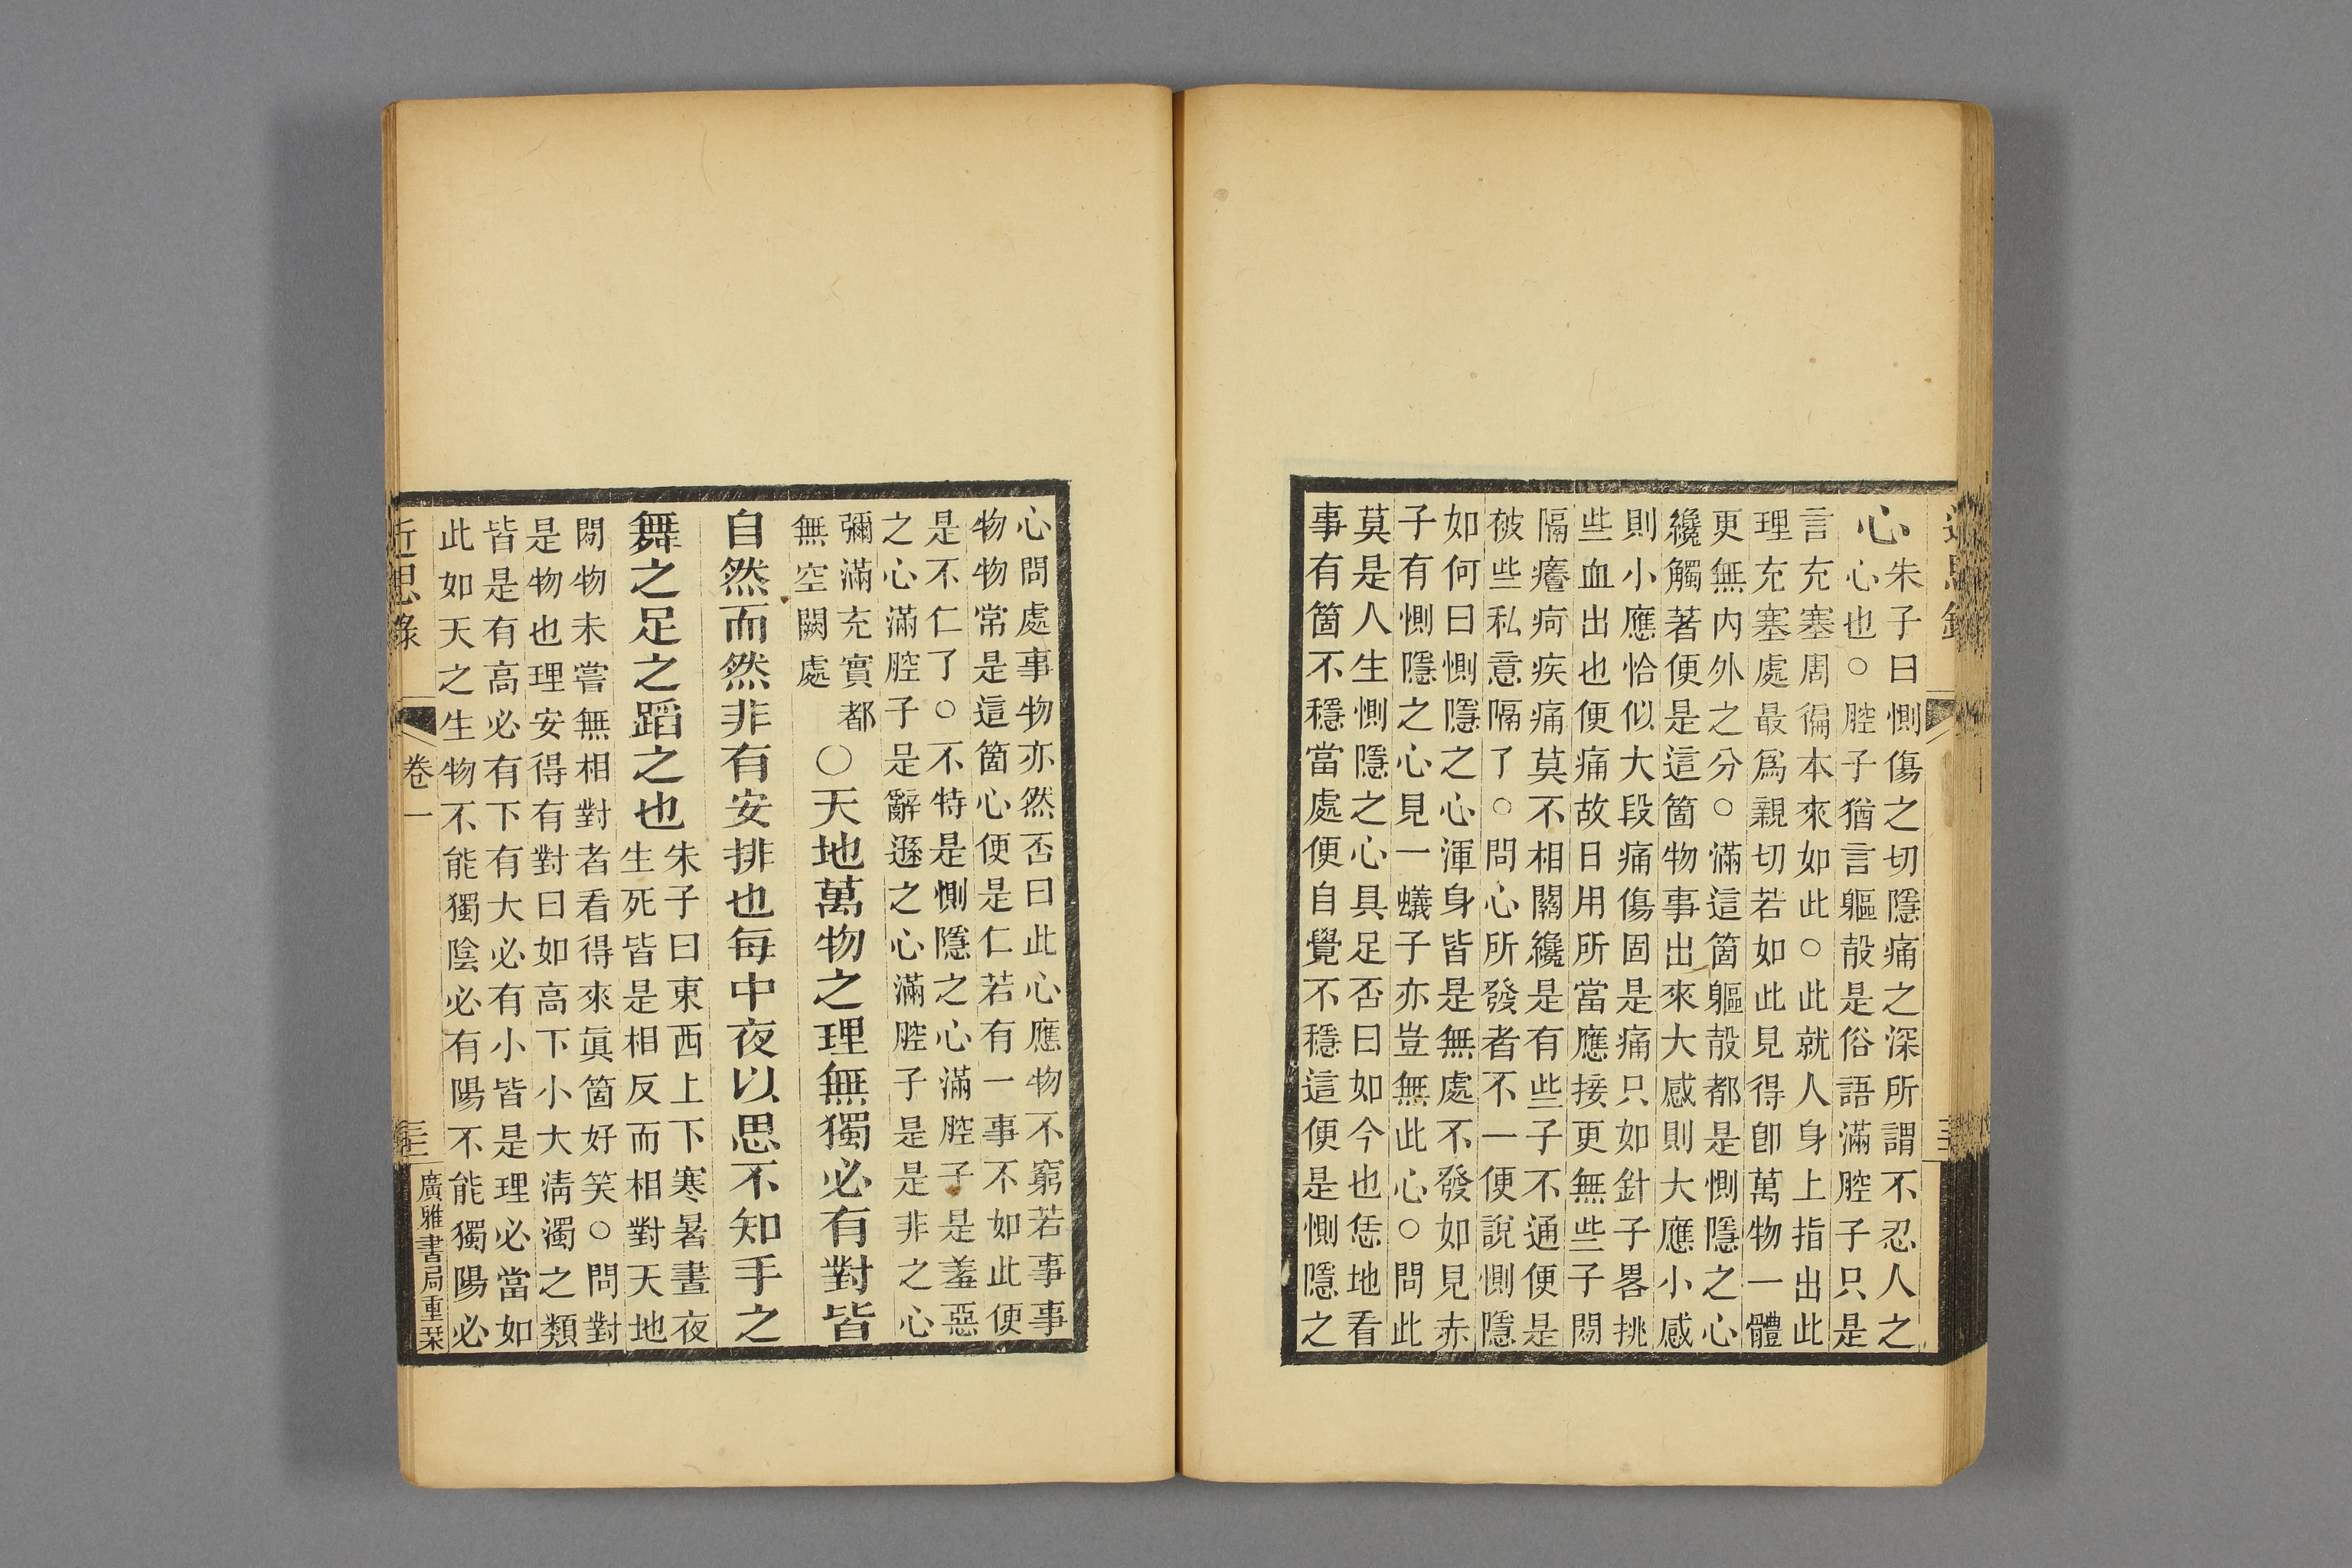 心
朱子曰惻傷之切隱痛之深所謂不忍人之
心也○腔子猶言軀殼是俗語滿腔子只是
言充塞周徧本來如此○此就人身上指出此
理充塞處最爲親切若如此見得卽萬物一體
更無內外之分○滿這箇軀殼都是惻隱之心
纔觸著便是這箇物事出來大感則大應小感
則小應恰似大段痛傷固是痛只如針子畧挑
些血出也便痛故日用所當應接更無些子閒
隔癢疴疾痛莫不相關纔是有些子不通便是
被些私意隔了○問心所發者不一便說惻隱
如何曰惻隱之心渾身皆是無處不發如見赤
子有惻隱之心見一蟻子亦豈無此心○問此
莫是人生惻隱之心具足否曰如今也恁地看
事有箇不穩當處便自覺不穩這便是惻隱之
心問處事物亦然否曰此心應物不窮若事事
物物常是這箇心便是仁若有一事不如此便
是不仁了○不特是惻隱之心滿腔子是羞惡
之心滿腔子是辭遜之心滿腔子是是非之心
彌滿充實都
無空闕處
○天地萬物之理無獨必有對皆
自然而然非有安排也每中夜以思不知手之
舞之足之蹈之也
朱子曰東西上下寒暑晝夜
生死皆是相反而相對天地
閒物未嘗無相對者看得來眞箇好笑○問對
是物也理安得有對曰如高下小大淸濁之類
皆是有高必有下有大必有小皆是理必當如
此如天之生物不能獨陰必有陽不能獨陽必
近思錄
卷一
三三
廣雅書局重栞